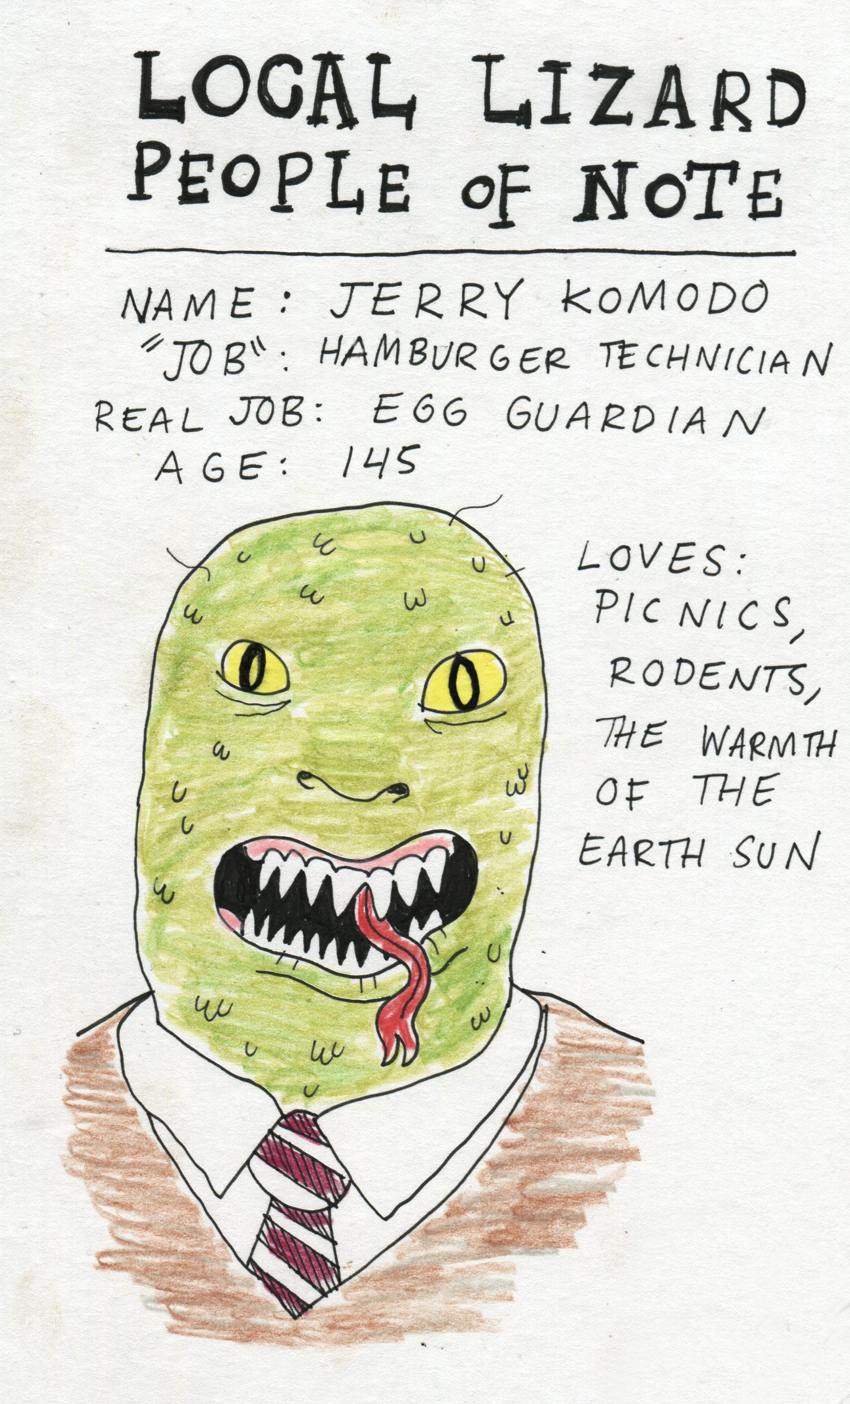 LOCAL LIZARD
PEOPLE OF NOTE
NAME: JERRY KOMODO
"JOB": HAMBURGER TECHNICIAN
REAL JOB: EGG GUARDIAN
AGE: 145
LOVES:
PICNICS,
RODENTS,
THE WARMTH
OF THE
EARTH SUN